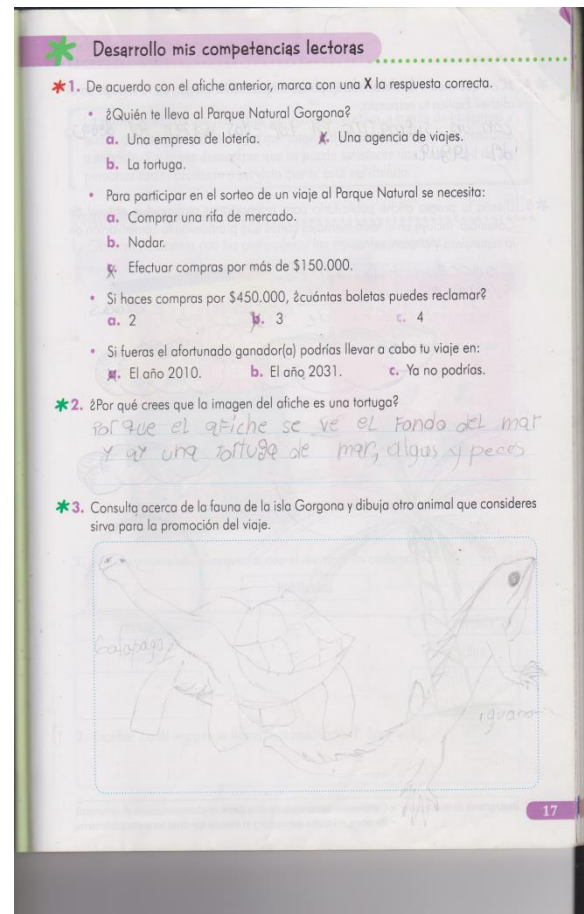 Desarrollo mis competencias lectoras
1. De acuerdo con el afiche anterior, marca con una X la respuesta correcta.
• ¿Quién te lleva al Parque Natural Gorgona?
a. Una empresa de lotería. c. Una agencia de viajes.
b. La tortuga.
• Para participar en el sorteo de un viaje al Parque Natural se necesita:
a. Comprar una rifa de mercado.
b. Nadar.
c. Efectuar compras por más de $150.000.
• Si haces compras por $450.000, ¿cuántas boletas puedes reclamar?
a. 2 b. 3 c. 4
• Si fueras el afortunado ganador(a) podrías llevar a cabo tu viaje en:
a. El año 2010. b. El año 2031. c. Ya no podrías.
2. ¿Por qué crees que la imagen del afiche es una tortuga?
Porque el afiche se ve el Fondo del mar
y ay una tortuga de mar, algas y peces
3. Consulta acerca de la fauna de la isla Gorgona y dibuja otro animal que consideres
sirva para la promoción del viaje.
Galapago
iguana
17